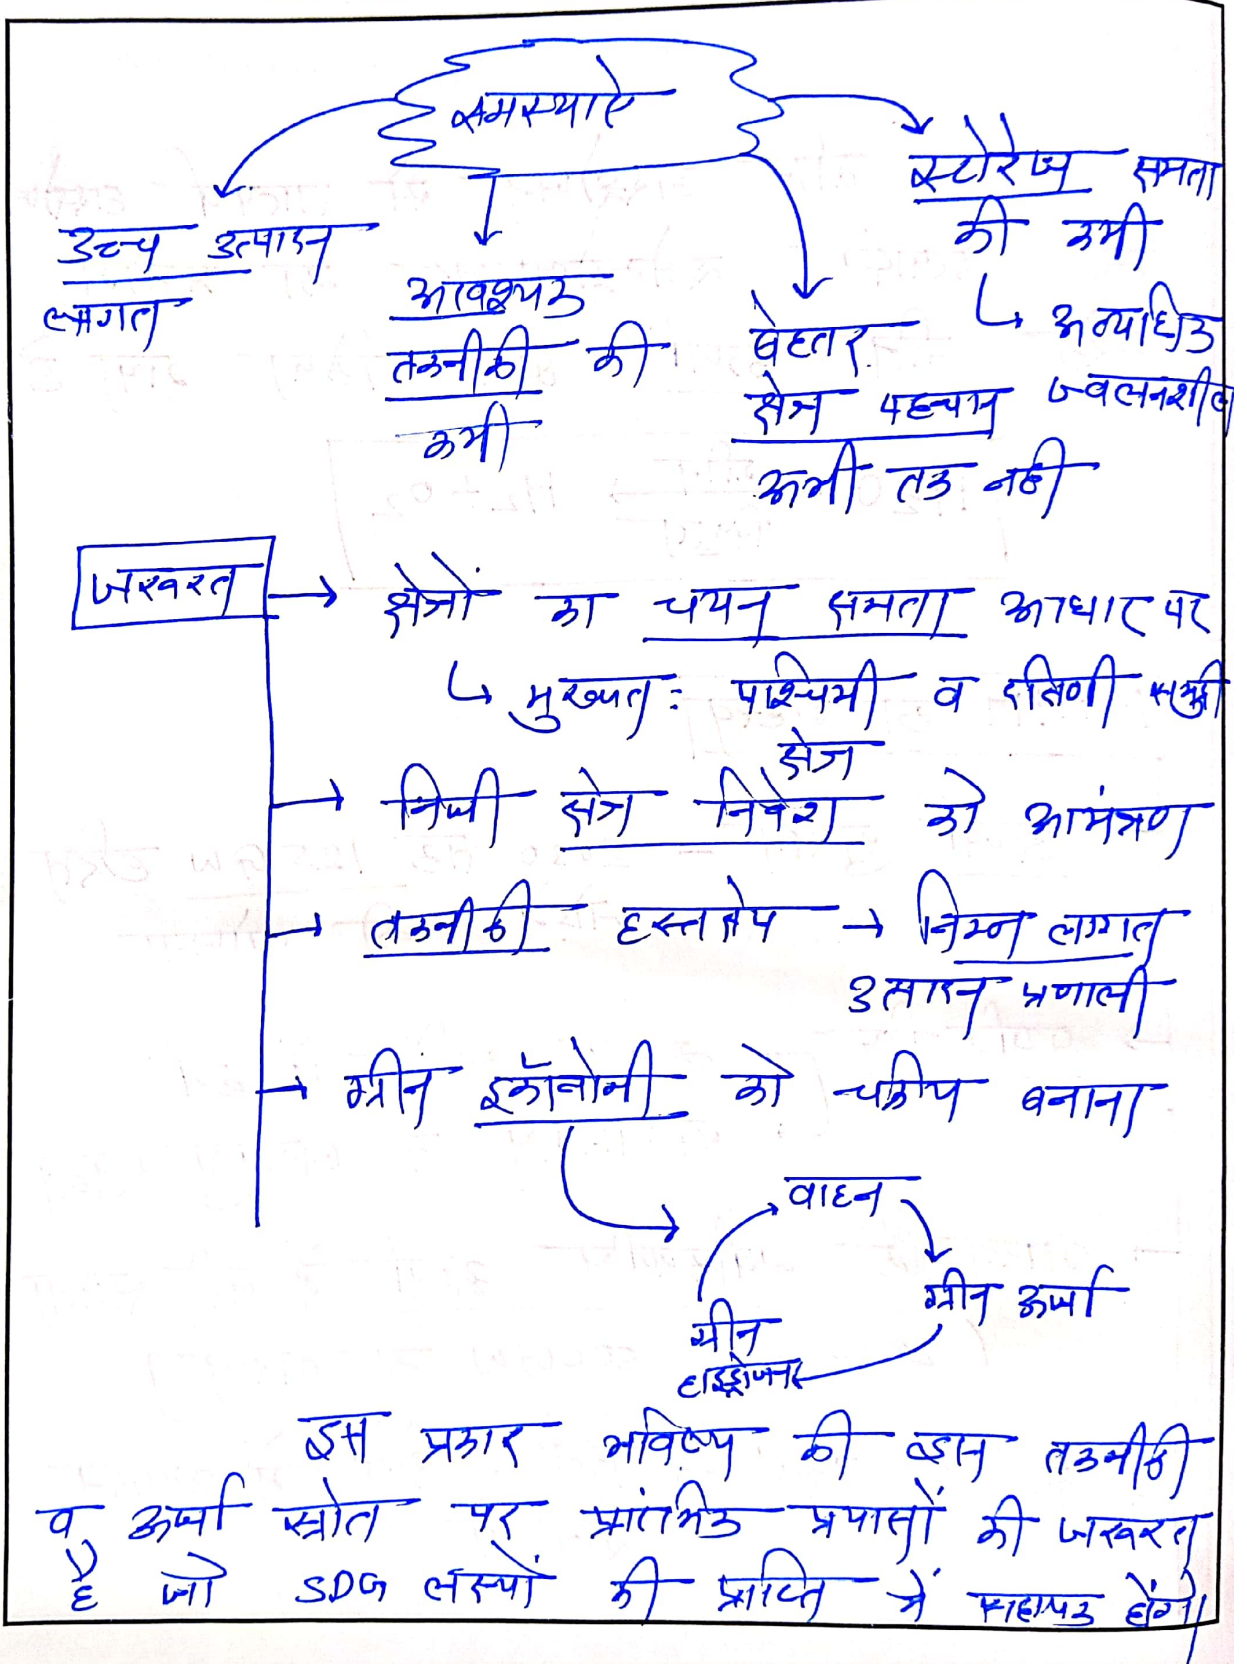 समस्याऐ
उच्च उत्पादन
लागत
आवश्यक
तकनीकी की
कमी
बेहतर
क्षेत्र पहचान
अभी तक नही
स्टोरेज क्षमता
की कमी
↳ अत्याधिक
ज्वलनशील
जरूरत
→ क्षेत्रों का चयन क्षमता आधार पर
↳ मुख्यत: पाश्चिमी व दक्षिणी समुद्री
क्षेत्र
→ निजी क्षेत्र निवेश को आमंत्रण
→ तकनीकी हस्तक्षेप → निम्न लागत
उत्पादन प्रणाली
→ ग्रीन इकॉनोमी को चक्रीय बनाना
वाहन
ग्रीन ऊर्जा
ग्रीन
हाइड्रोजन
इस प्रकार भविष्य की इस तकनीकी
व ऊर्जा स्रोत पर प्रारंभिक प्रयासों की जरूरत
है जो SDG लक्ष्यों की प्राप्ति में सहायक होंगे।